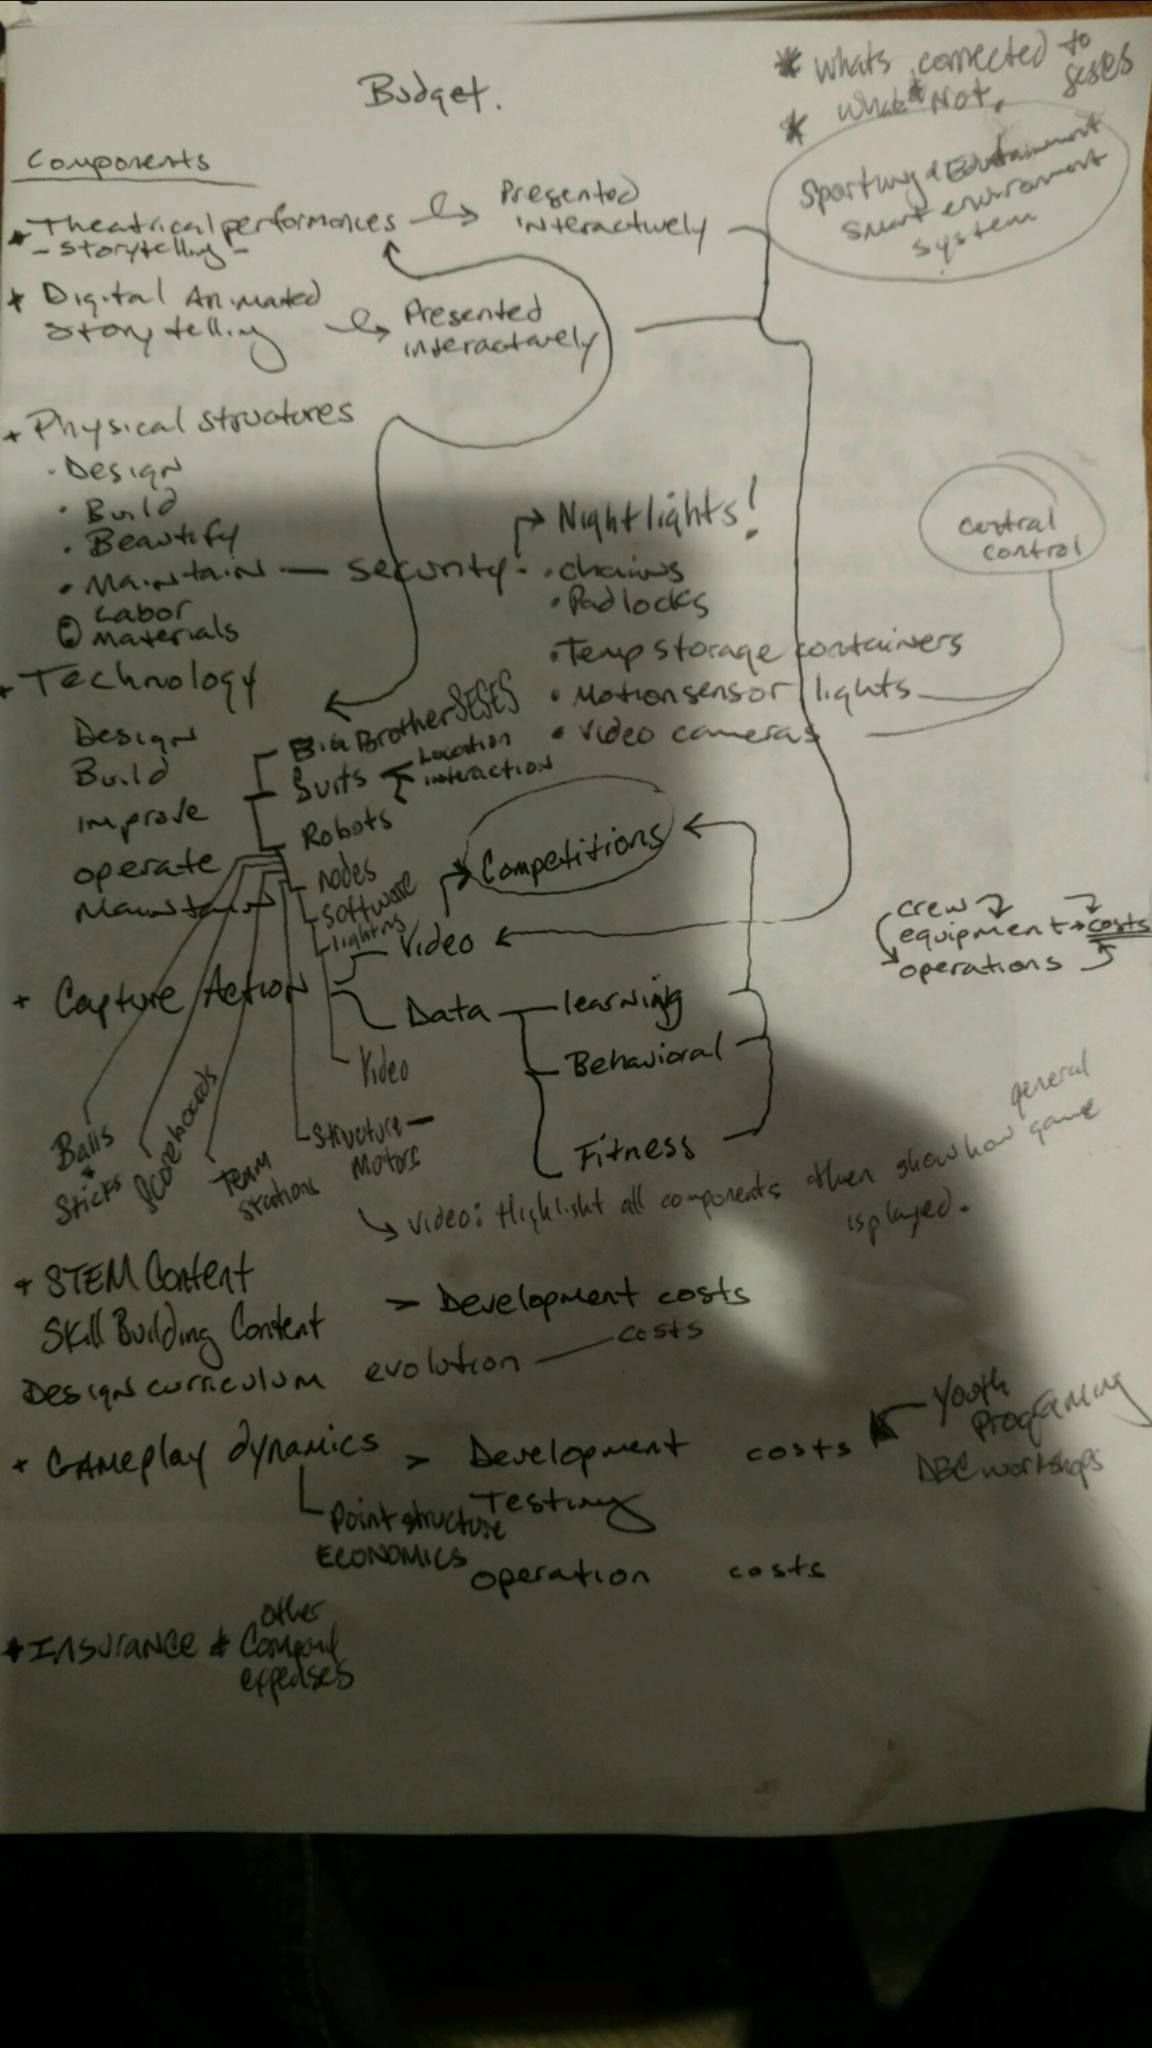 Budget.
* whats connected to SESES
* whats Not.
Sporting & Edutainment
Smart environment
system
Components
* Theatrical performances
- storytelling -
Presented
interactively
* Digital Animated
storytelling
Presented
interactively
+ Physical structures
· Design
· Build
· Beautify
· Maintain — security
Labor
materials
Nightlights!
· chains
· Padlocks
· Temp storage containers
· Motion sensor lights
· video cameras
central
control
+ Technology
Design
Build
improve
operate
Maintain
Big Brother SESES
Suits
Location
interaction
Robots
nodes
software
lighting
Video
Structure —
Motors
Balls
+
Sticks
Scoreboards
Team
stations
Competitions
crew
equipment → costs
operations
+ Capture Action
Video
Data
learning
Behavioral
Fitness
video: Highlight all components then show how general game
is played.
+ STEM Content
Skill Building Content
> Development costs
Design curriculum evolution — costs
+ GAMeplay dynamics > Development costs
Youth
Programing
DBC workshops
Testing
Point structure
ECONOMICS
operation costs
* Insurance + other
Company
expenses